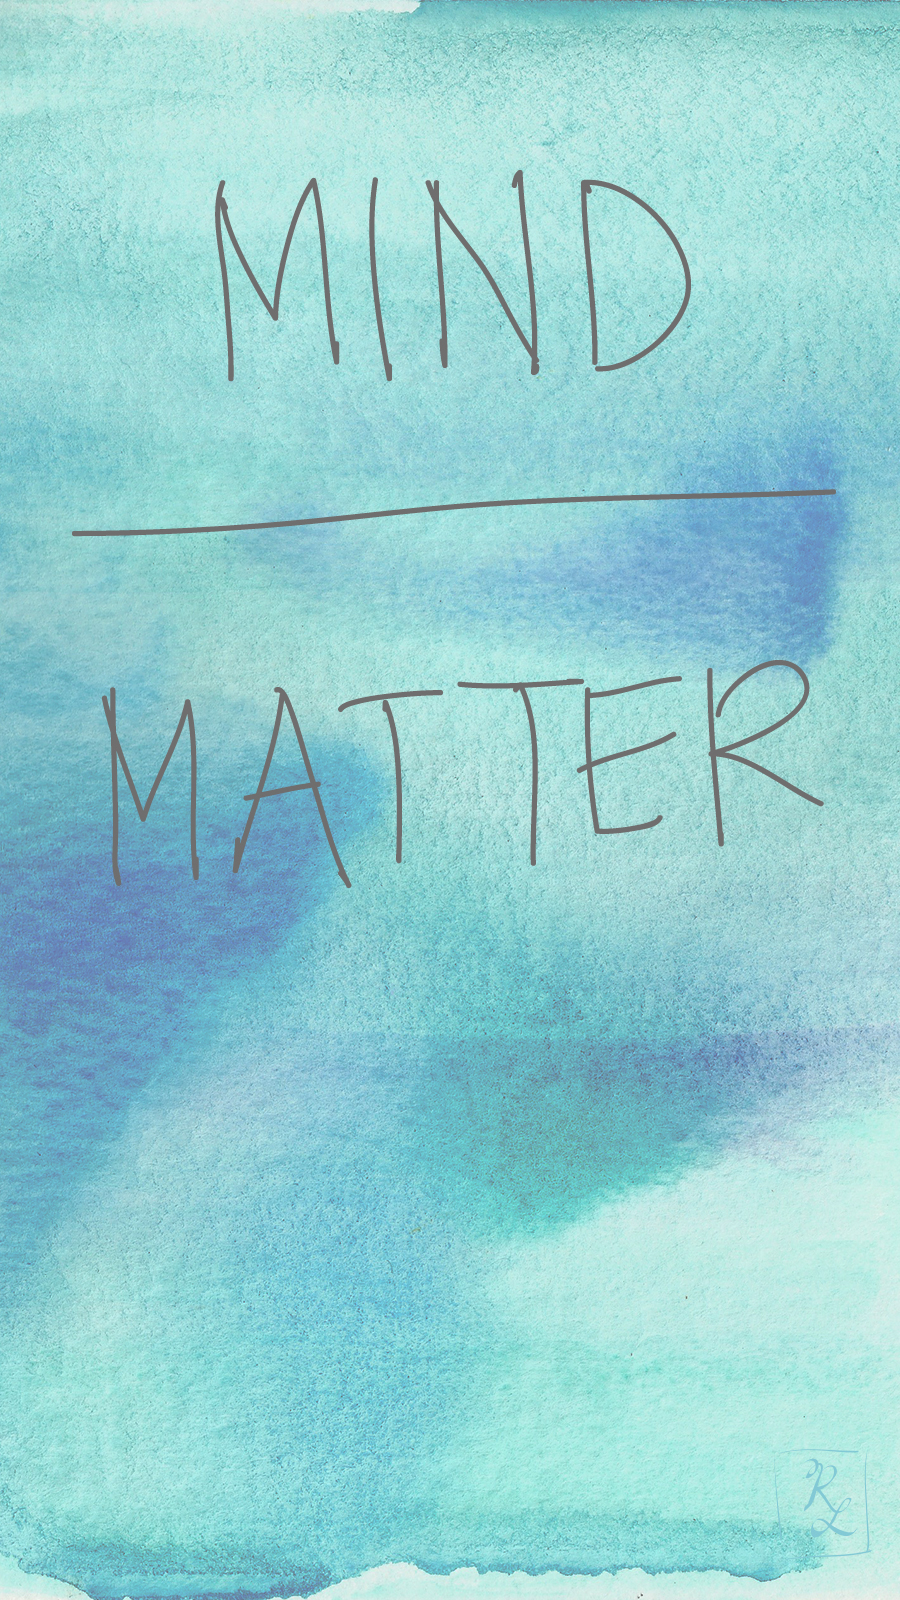 MIND
MATTER
RL